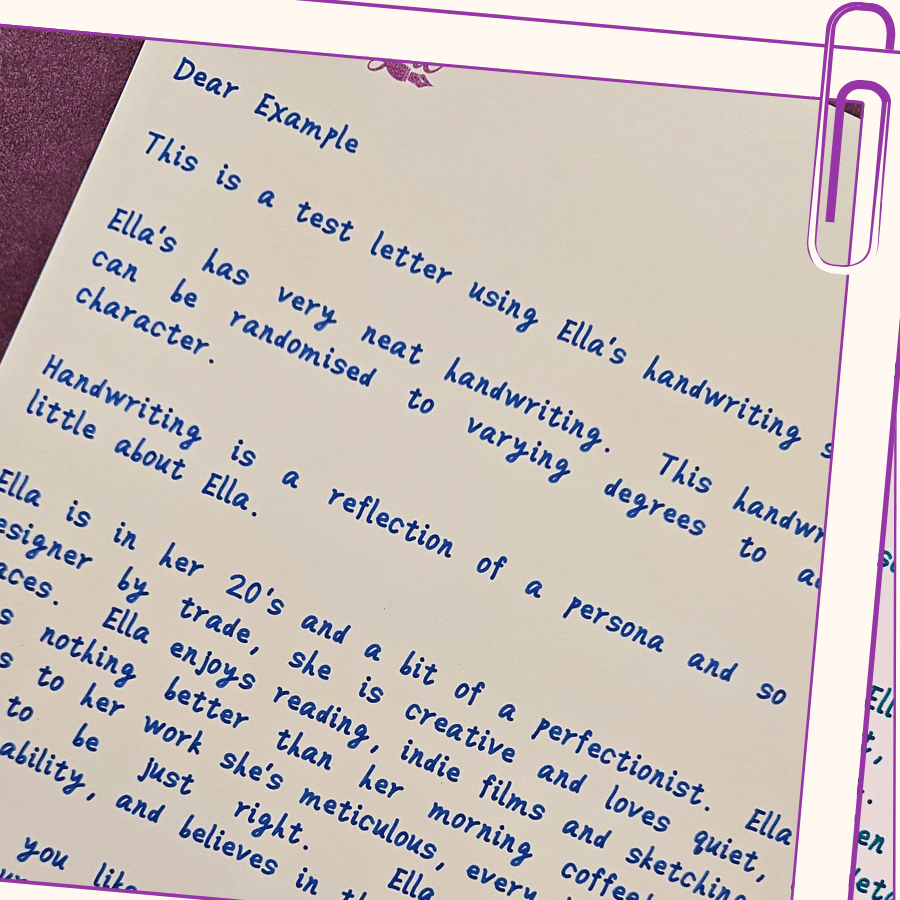 Dear Example
This is a test letter using Ella's handwriting s
Ella's has very neat handwriting. This handwr
can be randomised to varying degrees to
character.
Handwriting is a reflection of a persona and so
little about Ella.
Ella is in her 20's and a bit of a perfectionist. Ella
esigner by trade, she is creative and loves quiet,
aces. Ella enjoys reading, indie films and sketching
s nothing better than her morning coffee
s to her work she's meticulous, every
to be just right. Ella
ability, and believes in th
you like